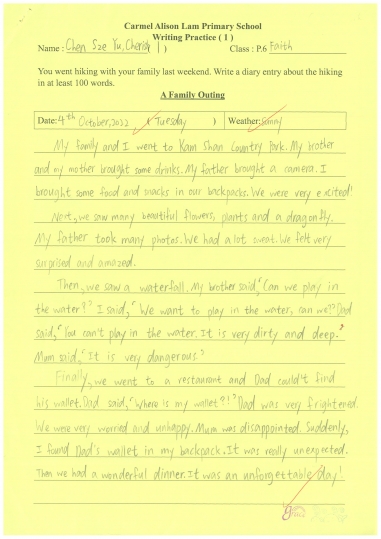 Carmel Alison Lam Primary School
Writing Practice ( 1 )
Name : Chen Sze Yu, Cherish ( ) Class : P.6 Faith
You went hiking with your family last weekend. Write a diary entry about the hiking
in at least 100 words.
A Family Outing
Date: 4th October, 2022 ( Tuesday ) Weather: Sunny
My family and I went to Kam Shan Country Park. My brother
and my mother brought some drinks. My father brought a camera. I
brought some food and snacks in our backpacks. We were very excited!
Next, we saw many beautiful flowers, plants and a dragonfly.
My father took many photos. We had a lot sweat. We felt very
surprised and amazed.
Then, we saw a waterfall. My brother said, "Can we play in
the water?" I said, "We want to play in the water, can we?" Dad
said, "You can't play in the water. It is very dirty and deep."
Mum said, "It is very dangerous."
Finally, we went to a restaurant and Dad could't find
his wallet. Dad said, "Where is my wallet?!" Dad was very frightened.
We were very worried and unhappy. Mum was disappointed. Suddenly,
I found Dad's wallet in my backpack. It was really unexpected.
Then we had a wonderful dinner. It was an unforgettable day!